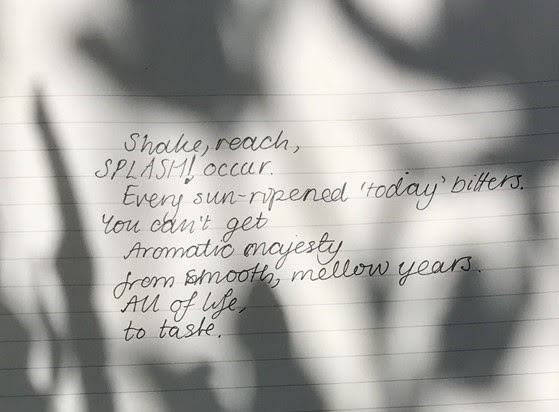 Shake, reach,
SPLASH! occur.
Every sun-ripened 'today' bitters.
You can't get
Aromatic majesty
from smooth, mellow years.
All of life,
to taste.